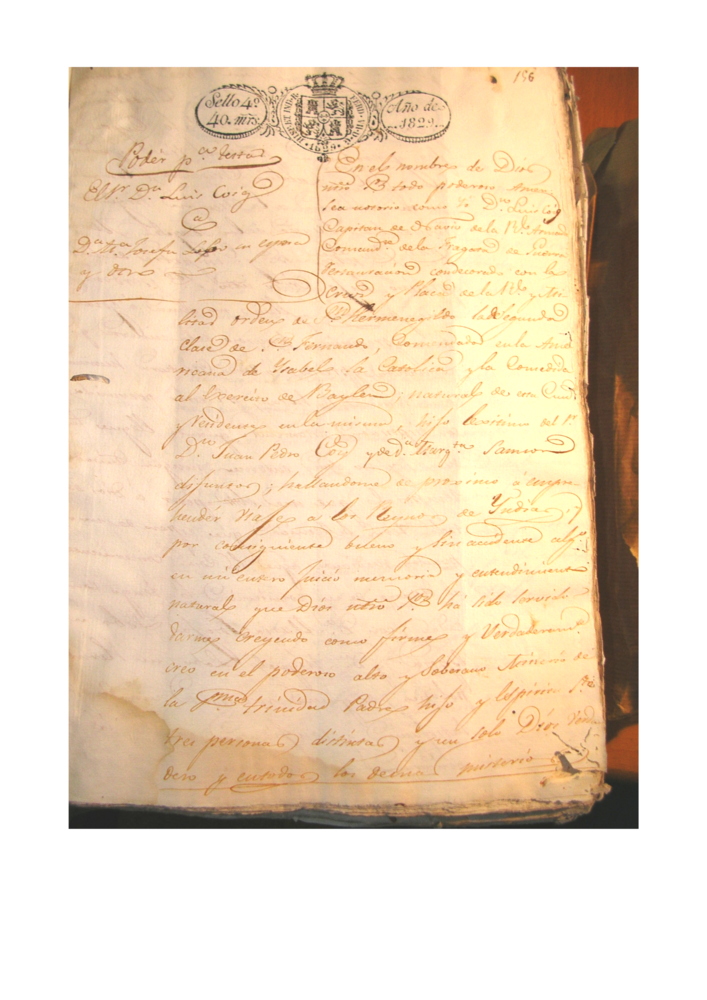 156
Sello 4º
40. mrs.
HISP. ET IND. R.
FERD. VII. D. G.
1829
Año de
1829.
Poder pª testar
El Sr Dn Luis Coig
a
Dª Mª Josefa su esposa
y otros
En el nombre de Dios
ntro Sr todo poderoso Amen
sea notorio como Yo Dn Luis Coig
Capitan de Navio de la Rl Armada
Comandte de la Fragata de Guerra
Restauracion condecorado con la
Cruz y Placa de la Rl y Mi-
litar orden de Sn Hermenegildo la de segunda
Clase de Sn Fernando, Comendador en la Ame-
ricana de Ysabel la Catolica y la Concedida
al Exercito de Baylen; natural de esta Ciud
y residente en la misma, hijo lexitimo del Sr
Dn Juan Pedro Coig y de dª Margta Samson
difuntos; hallandome de proximo á empre-
hender viaje á los Reynos de Yndias, y
por consiguiente bueno y sin accidente algo
en mi entero Juicio memoria y entendimiento
natural que Dios ntro Sr há sido servido
darme creyendo como firme y Verdaderamte
creo en el poderoso alto y Soberano Misterio de
la Sma trinidad Padre hijo y Espiritu Sto
tres personas distintas y un solo Dios Verda-
dero y en todos los demas misterios